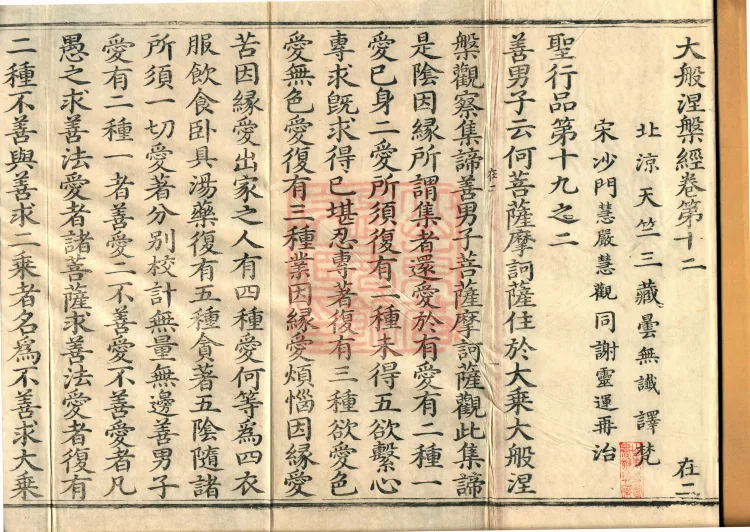 大般涅槃經卷第十二
在二
北涼天竺三藏曇無讖譯梵
宋沙門慧嚴慧觀同謝靈運再治
聖行品第十九之二
善男子云何菩薩摩訶薩住於大乘大般涅
槃觀察集諦善男子菩薩摩訶薩觀此集諦
是陰因緣所謂集者還愛於有愛有二種一
愛已身二愛所須復有二種未得五欲繫心
專求旣求得已堪忍專著復有三種欲愛色
愛無色愛復有三種業因緣愛煩惱因緣愛
苦因緣愛出家之人有四種愛何等為四衣
服飲食卧具湯藥復有五種貪著五陰隨諸
所須一切愛著分别校計無量無邊善男子
愛有二種一者善愛二不善愛不善愛者凡
愚之求善法愛者諸菩薩求善法愛者復有
二種不善與善求二乘者名為不善求大乘